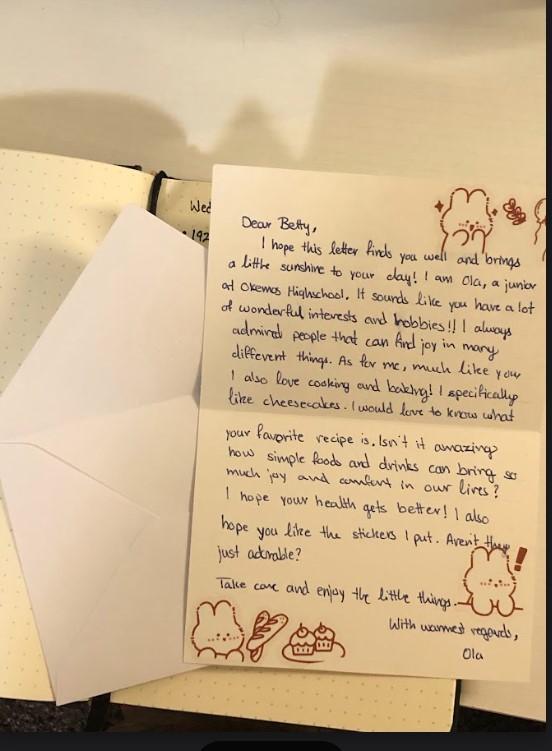 Wed
192
Dear Betty,
I hope this letter finds you well and brings
a little sunshine to your day! I am Ola, a junior
at Okemos Highschool. It sounds like you have a lot
of wonderful interests and hobbies!! I always
admired people that can find joy in many
different things. As for me, much like you
I also love cooking and baking! I specifically
like cheesecakes. I would love to know what
your favorite recipe is. Isn't it amazing
how simple foods and drinks can bring so
much joy and comfort in our lives?
I hope your health gets better! I also
hope you like the stickers I put. Aren't they
just adorable?
Take care and enjoy the little things.
With warmest regards,
Ola